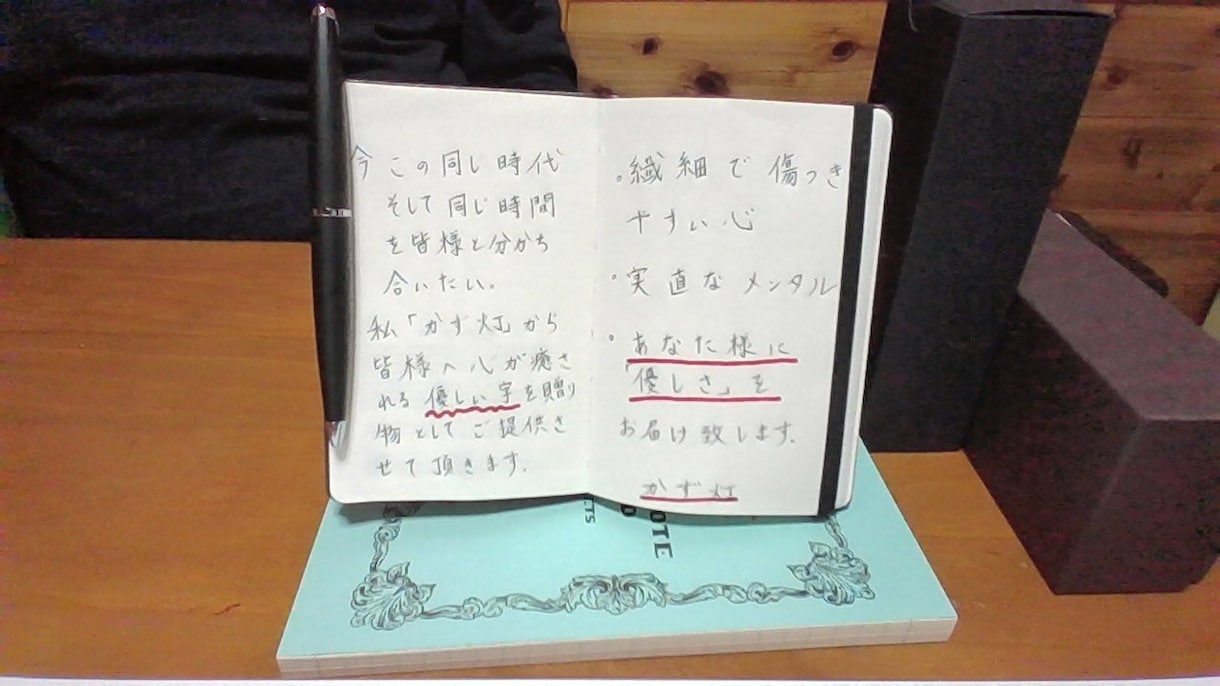 今この同じ時代
そして同じ時間
を皆様と分かち
合いたい。
私「かず灯」から
皆様へ心が癒さ
れる優しい字を贈り
物としてご提供さ
せて頂きます。
・繊細で傷つき
やすい心
・実直なメンタル
・あなた様に
「優しさ」を
お届け致します。
かず灯
OTE
TS